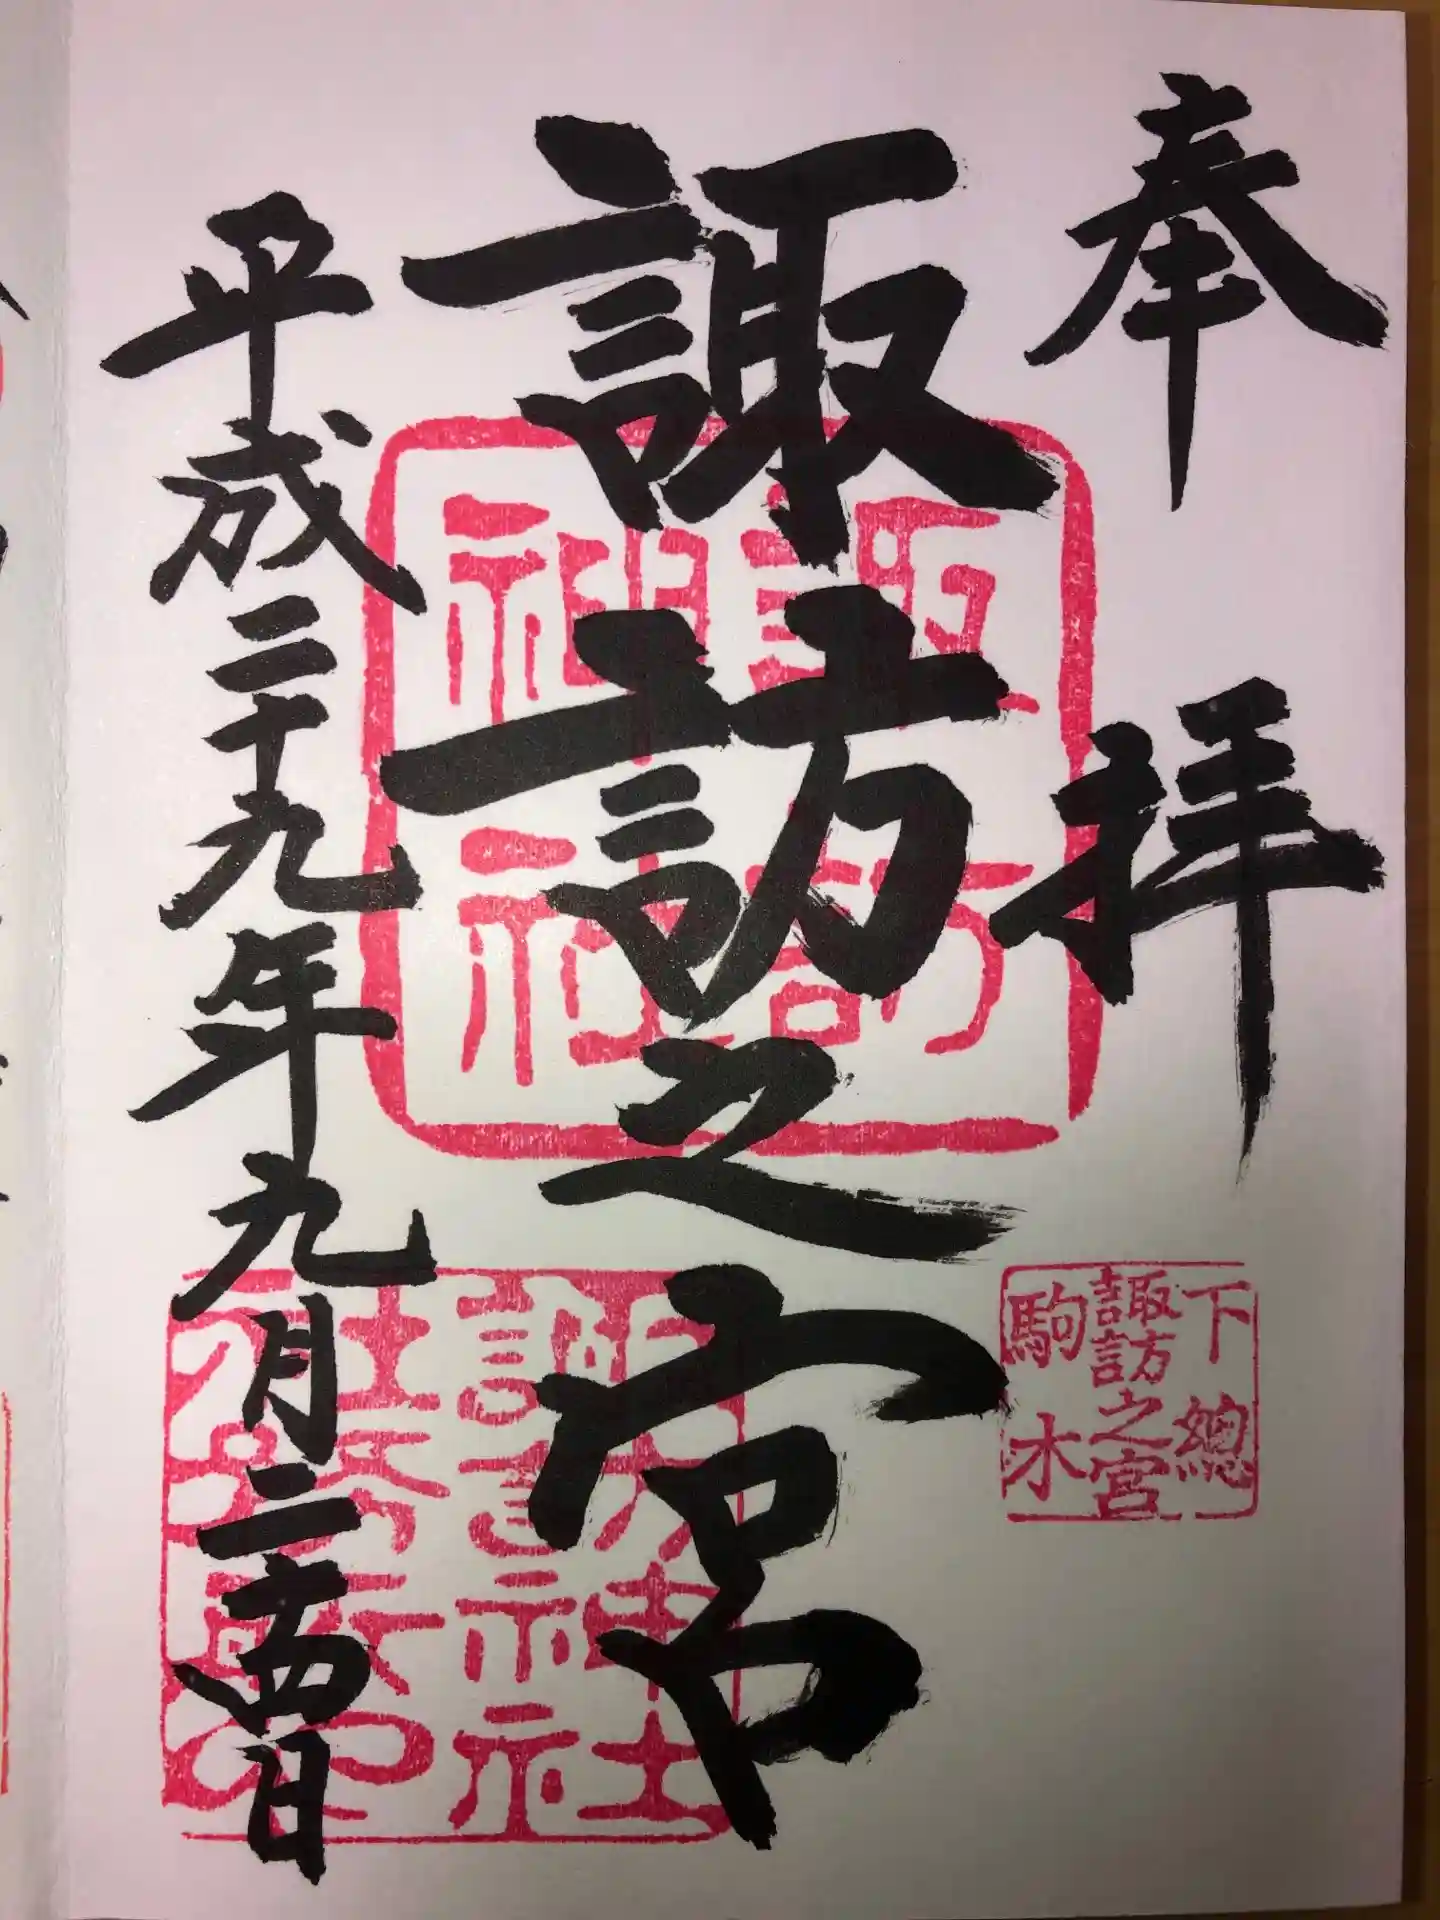 奉拝
下總
諏訪之宮
駒木
諏訪之宮
諏訪
神社
諏訪神社
平成二十九年九月二十四日